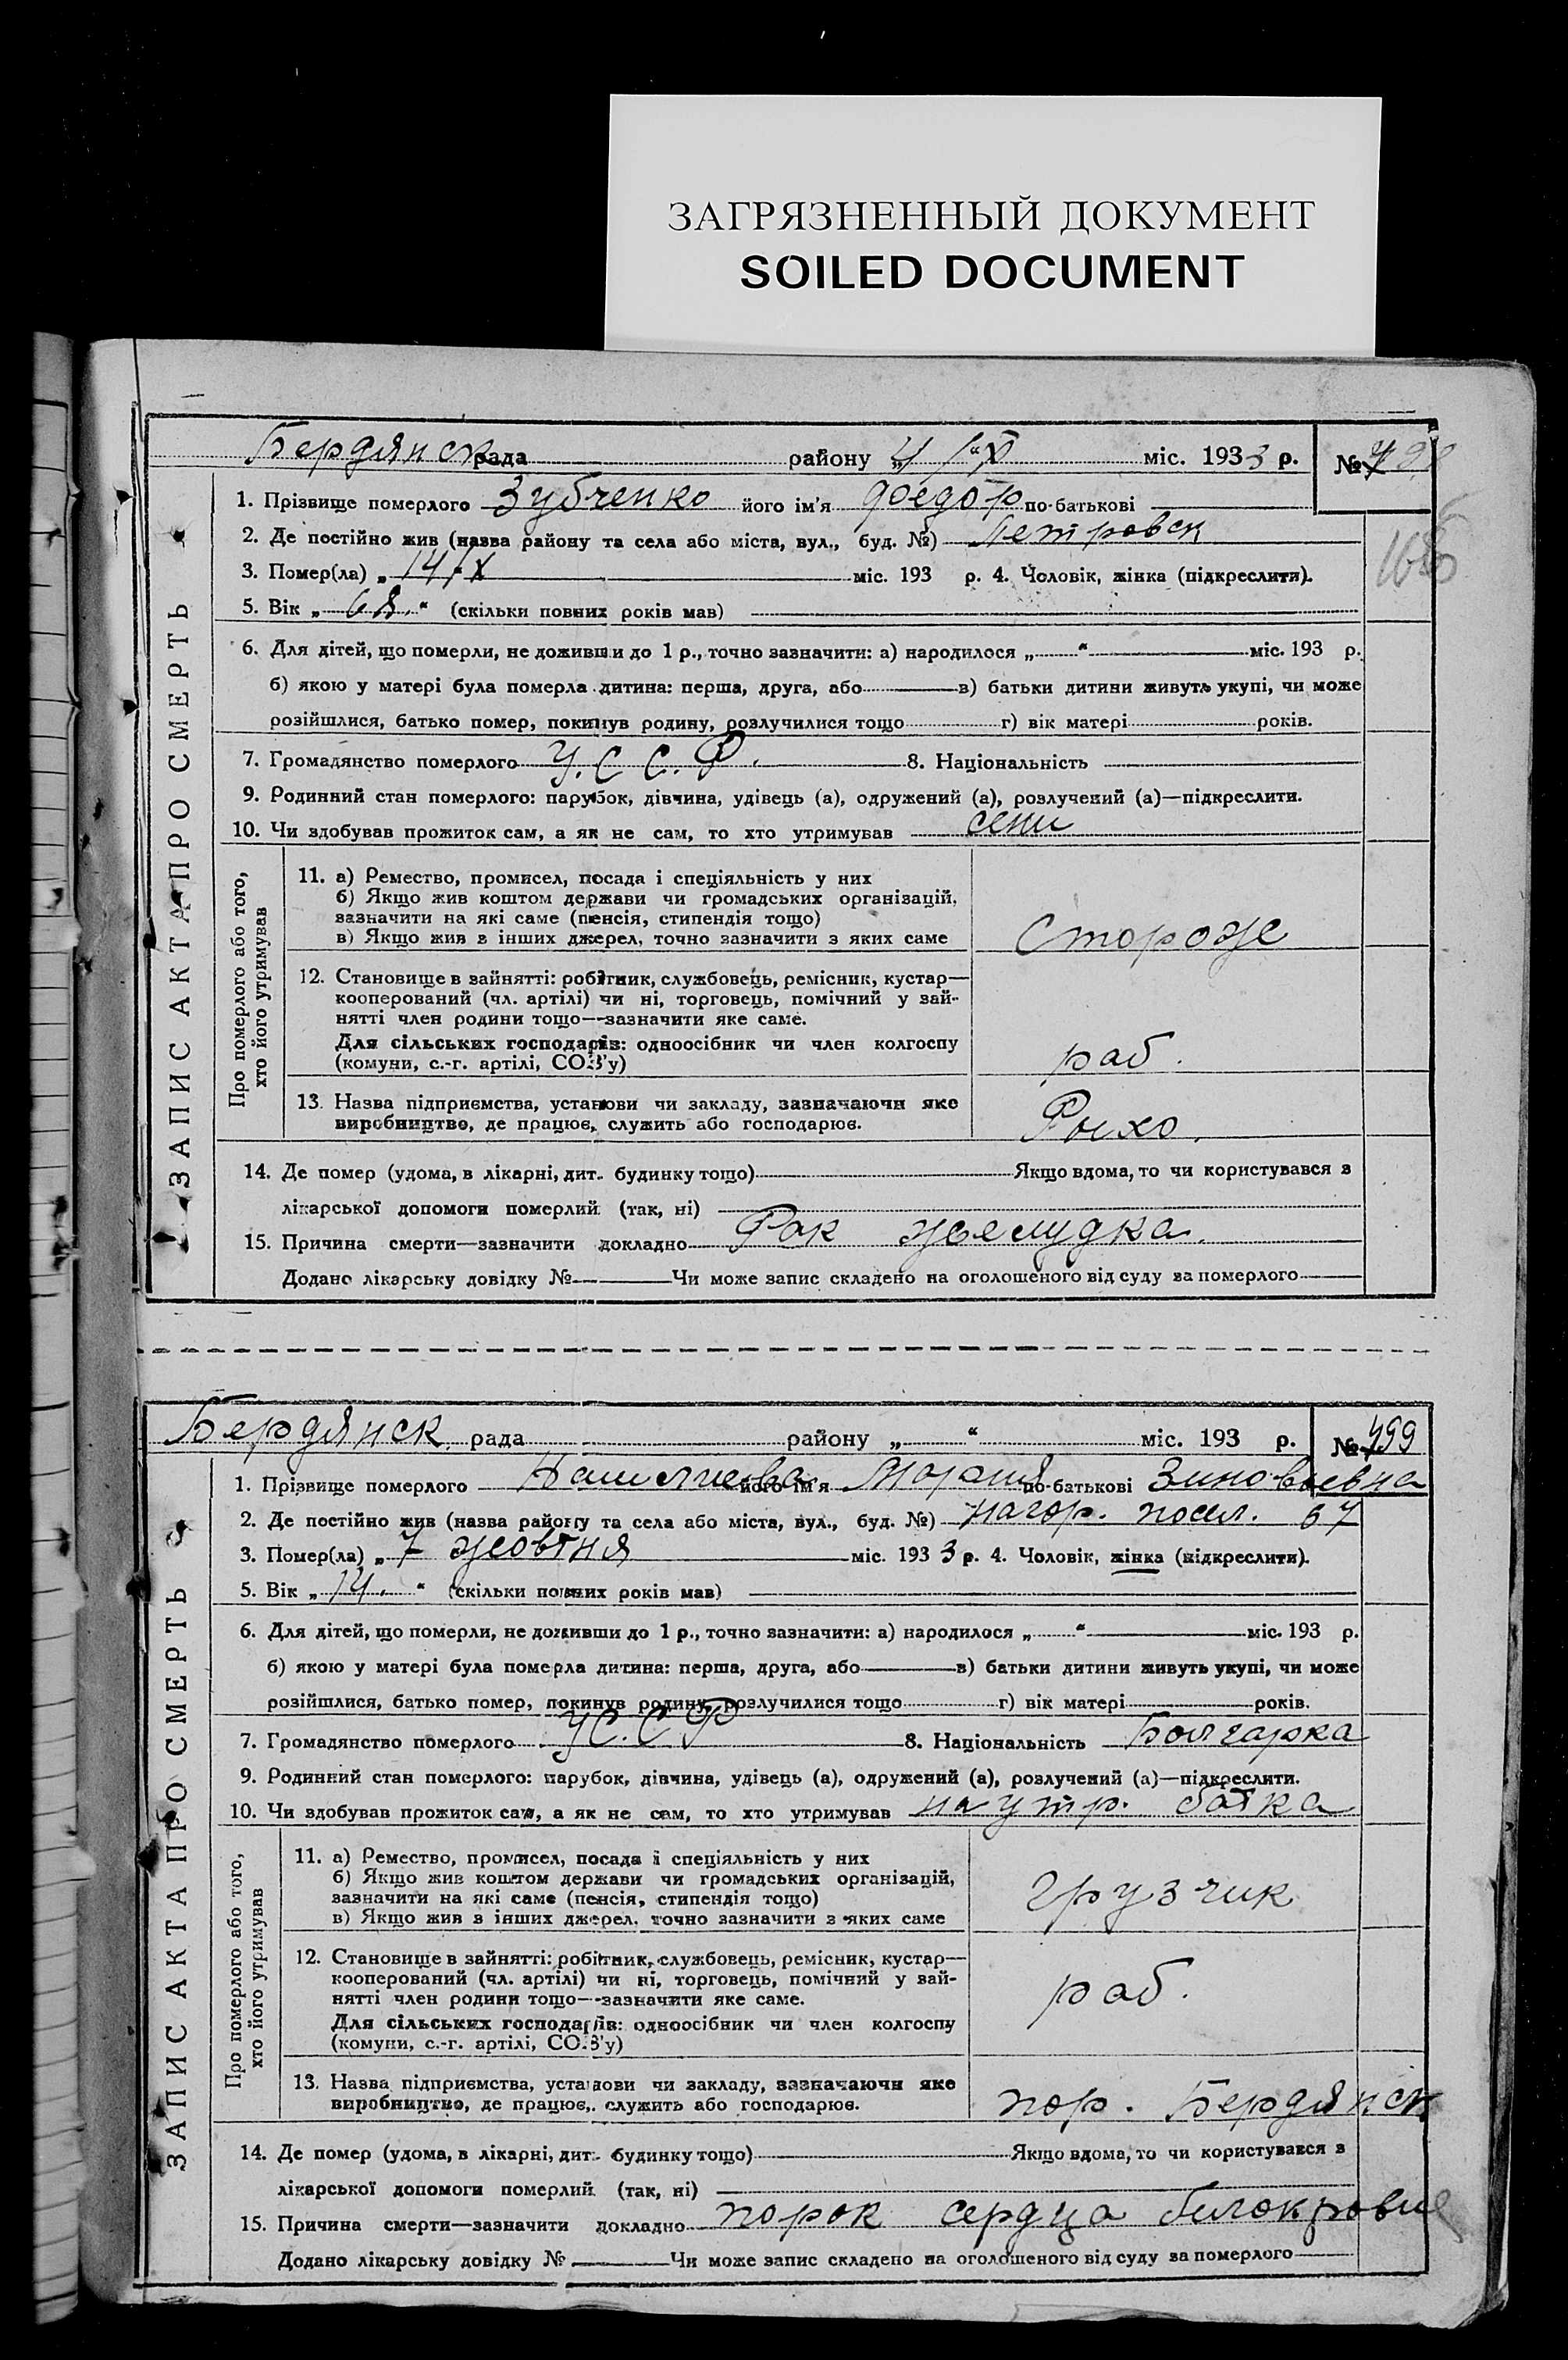 ЗАГРЯЗНЕННЫЙ ДОКУМЕНТ
SOILED DOCUMENT
Бердянск рада району „ “ міс. 1933 р. №
1. Прізвище померлого Зубченко його ім'я Фёдор по-батькові
2. Де постійно жив (назва району та села або міста, вул., буд. №) Петровск
3. Помер(ла) „ 14/X міс. 193 р. 4. Чоловік, жінка (підкреслити).
5. Вік „ “ (скільки повних років мав)
6. Для дітей, що померли, не доживши до 1 р., точно зазначити: а) народилося „ “ міс. 193 р.
б) якою у матері була померла дитина: перша, друга, або в) батьки дитини живуть укупі, чи може
розійшлися, батько помер, покинув родину, розлучилися тощо г) вік матері років.
7. Громадянство померлого У.С.С.Р. 8. Національність
9. Родинний стан померлого: парубок, дівчина, удівець (а), одружений (а), розлучений (а)—підкреслити.
10. Чи здобував прожиток сам, а як не сам, то хто утримував
ЗАПИС АКТА ПРО СМЕРТЬ
Про померлого або того, хто його утримував
11. а) Ремество, промисел, посада і спеціяльність у них
б) Якщо жив коштом держави чи громадських організацій,
зазначити на які саме (пенсія, стипендія тощо)
в) Якщо жив з інших джерел, точно зазначити з яких саме Стороже
12. Становище в зайнятті: робітник, службовець, ремісник, кустар—
кооперований (чл. артілі) чи ні, торговець, помічний у зай-
нятті член родини тощо—зазначити яке саме.
Для сільських господарів: одноосібник чи член колгоспу
(комуни, с.-г. артілі, СОЗ'у) раб.
13. Назва підприємства, установи чи закладу, зазначаючи яке
виробництво, де працює, служить або господарює.
14. Де помер (удома, в лікарні, дит. будинку тощо) Якщо вдома, то чи користувався з
лікарської допомоги померлий (так, ні)
15. Причина смерти—зазначити докладно Рак желудка.
Додано лікарську довідку № Чи може запис складено на оголошеного від суду за померлого
Бердянск рада району „ “ міс. 193 р. № 499
1. Прізвище померлого його ім'я Мария по-батькові Зиновьевна
2. Де постійно жив (назва району та села або міста, вул., буд. №) нагор. посел. 67
3. Помер(ла) „ 7 жовтня міс. 1933 р. 4. Чоловік, жінка (підкреслити).
5. Вік „ 14. “ (скільки повних років мав)
6. Для дітей, що померли, не доживши до 1 р., точно зазначити: а) народилося „ “ міс. 193 р.
б) якою у матері була померла дитина: перша, друга, або в) батьки дитини живуть укупі, чи може
розійшлися, батько помер, покинув родину, розлучилися тощо г) вік матері років.
7. Громадянство померлого УС.С.Р 8. Національність Болгарка
9. Родинний стан померлого: парубок, дівчина, удівець (а), одружений (а), розлучений (а)—підкреслити.
10. Чи здобував прожиток сам, а як не сам, то хто утримував на утр. батка
ЗАПИС АКТА ПРО СМЕРТЬ
Про померлого або того, хто його утримував
11. а) Ремество, промисел, посада і спеціяльність у них
б) Якщо жив коштом держави чи громадських організацій,
зазначити на які саме (пенсія, стипендія тощо)
в) Якщо жив з інших джерел, точно зазначити з яких саме грузчик
12. Становище в зайнятті: робітник, службовець, ремісник, кустар—
кооперований (чл. артілі) чи ні, торговець, помічний у зай-
нятті член родини тощо—зазначити яке саме.
Для сільських господарів: одноосібник чи член колгоспу
(комуни, с.-г. артілі, СОЗ'у) раб.
13. Назва підприємства, установи чи закладу, зазначаючи яке
виробництво, де працює, служить або господарює. пор. Бердянск
14. Де помер (удома, в лікарні, дит. будинку тощо) Якщо вдома, то чи користувався з
лікарської допомоги померлий (так, ні)
15. Причина смерти—зазначити докладно порок сердца белокровие
Додано лікарську довідку № Чи може запис складено на оголошеного від суду за померлого